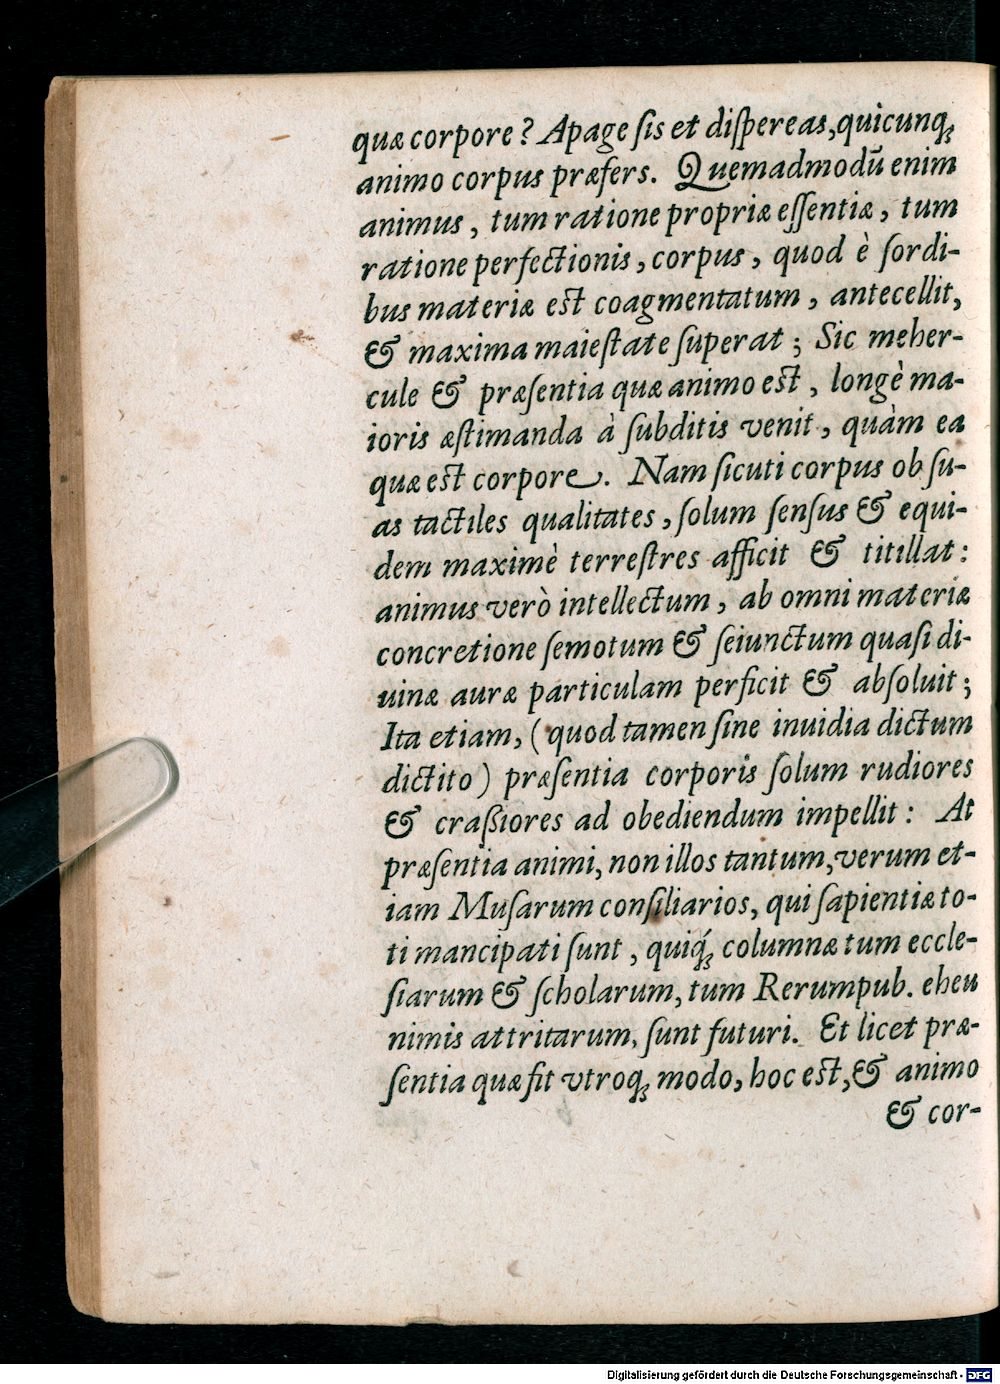 quæ corpore? Apage ſis et diſpereas, quicunq;
animo corpus præfers. Quemadmodū enim
animus, tum ratione propriæ eſſentiæ, tum
ratione perfectionis, corpus, quod è ſordi-
bus materiæ est coagmentatum, antecellit,
& maxima maieſtate ſuperat; Sic meher-
cule & præſentia quæ animo est, longè ma-
ioris æſtimanda à ſubditis venit, quàm ea
quæ est corpore. Nam ſicuti corpus ob ſu-
as tactiles qualitates, ſolum ſenſus & equi-
dem maximè terreſtres afficit & titillat:
animus verò intellectum, ab omni materiæ
concretione ſemotum & ſeiunctum quaſi di-
uinæ auræ particulam perficit & abſoluit;
Ita etiam, (quod tamen ſine inuidia dictum
dictito) præſentia corporis ſolum rudiores
& craßiores ad obediendum impellit: At
præſentia animi, non illos tantum, verum et-
iam Muſarum conſiliarios, qui ſapientiæ to-
ti mancipati ſunt, quiq́; columnæ tum eccle-
ſiarum & ſcholarum, tum Rerumpub. eheu
nimis attritarum, ſunt futuri. Et licet præ-
ſentia quæ fit vtroq; modo, hoc est, & animo
& cor-
Digitalisierung gefördert durch die Deutsche Forschungsgemeinschaft - DFG